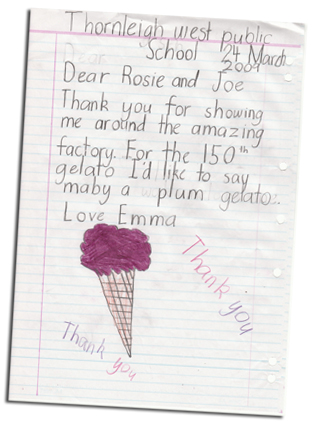 Thornleigh west public
School 24 March
2009
Dear
Dear Rosie and Joe
Thank you for showing
me around the amazing
factory. For the 150th
gelato I'd like to say
maby a plum gelato.
Love Emma
Thank you
Thank you